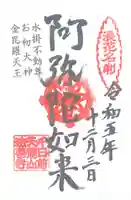 浪花名刹
令和五年
十二月三日
阿弥陀如来
水掛不動尊
お初大神
金毘羅天王